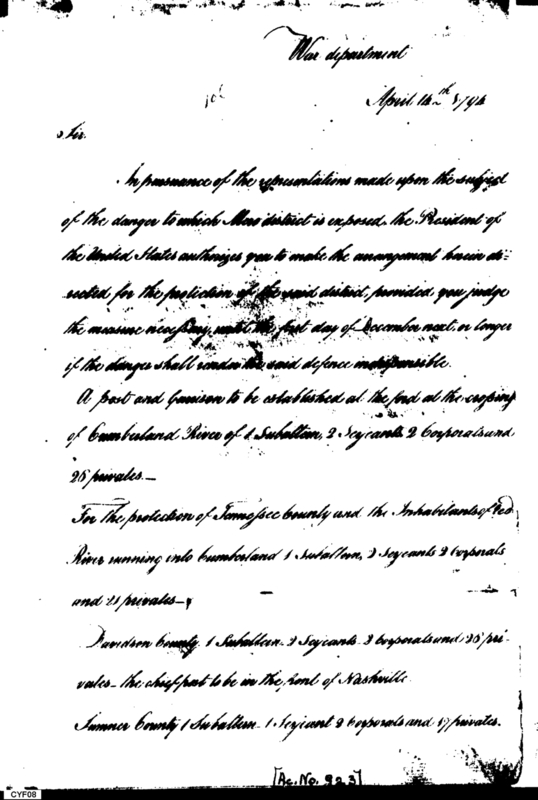 War department
April 14th 1794
Sir.
In pursuance of the representations made upon the subject
of the danger to which Mero district is exposed, the President of
the United States authorizes you to make the arrangement herein di-
rected for the protection of the said district, provided you judge
the measure necessary, until the first day of December next, or longer
if the danger shall render the said defence indispensible.
A post and Garrison to be established at the ford at the crossing
of Cumberland River of 1 Subaltern, 2 Serjeants 2 Corporals and
26 privates.—
For the protection of Tennessee County and the Inhabitants of Red
River running into Cumberland 1 Subaltern, 2 Serjeants 2 Corporals
and 21 privates—
Davidson County 1 Subaltern. 2 Serjeants. 2 Corporals and 26 pri-
vates— the chief part to be in the front of Nashville.
Sumner County 1 Subaltern. 1 Serjeant 2 Corporals and 17 privates.
[Ac. No. 923]
CYF08